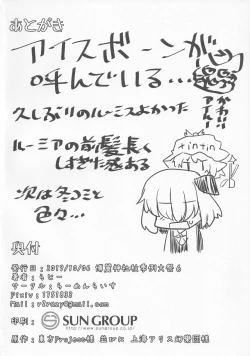 あとがき
アイスボーンが
呼んでいる...
かわいい
久しぶりのルーミスよかった
ルーミアの前髪長く
しすぎた感ある
tintin
次は冬コミと
色々...
奥付
発行日：2019/10/06 博麗神社秋季例大祭6
著者：らぐー
サークル：らーめんらいす
Pixiv：1751932
印刷：SUN GROUP
http://www.sungroup.co.jp
原作：東方Project様 並びに 上海アリス幻樂団様